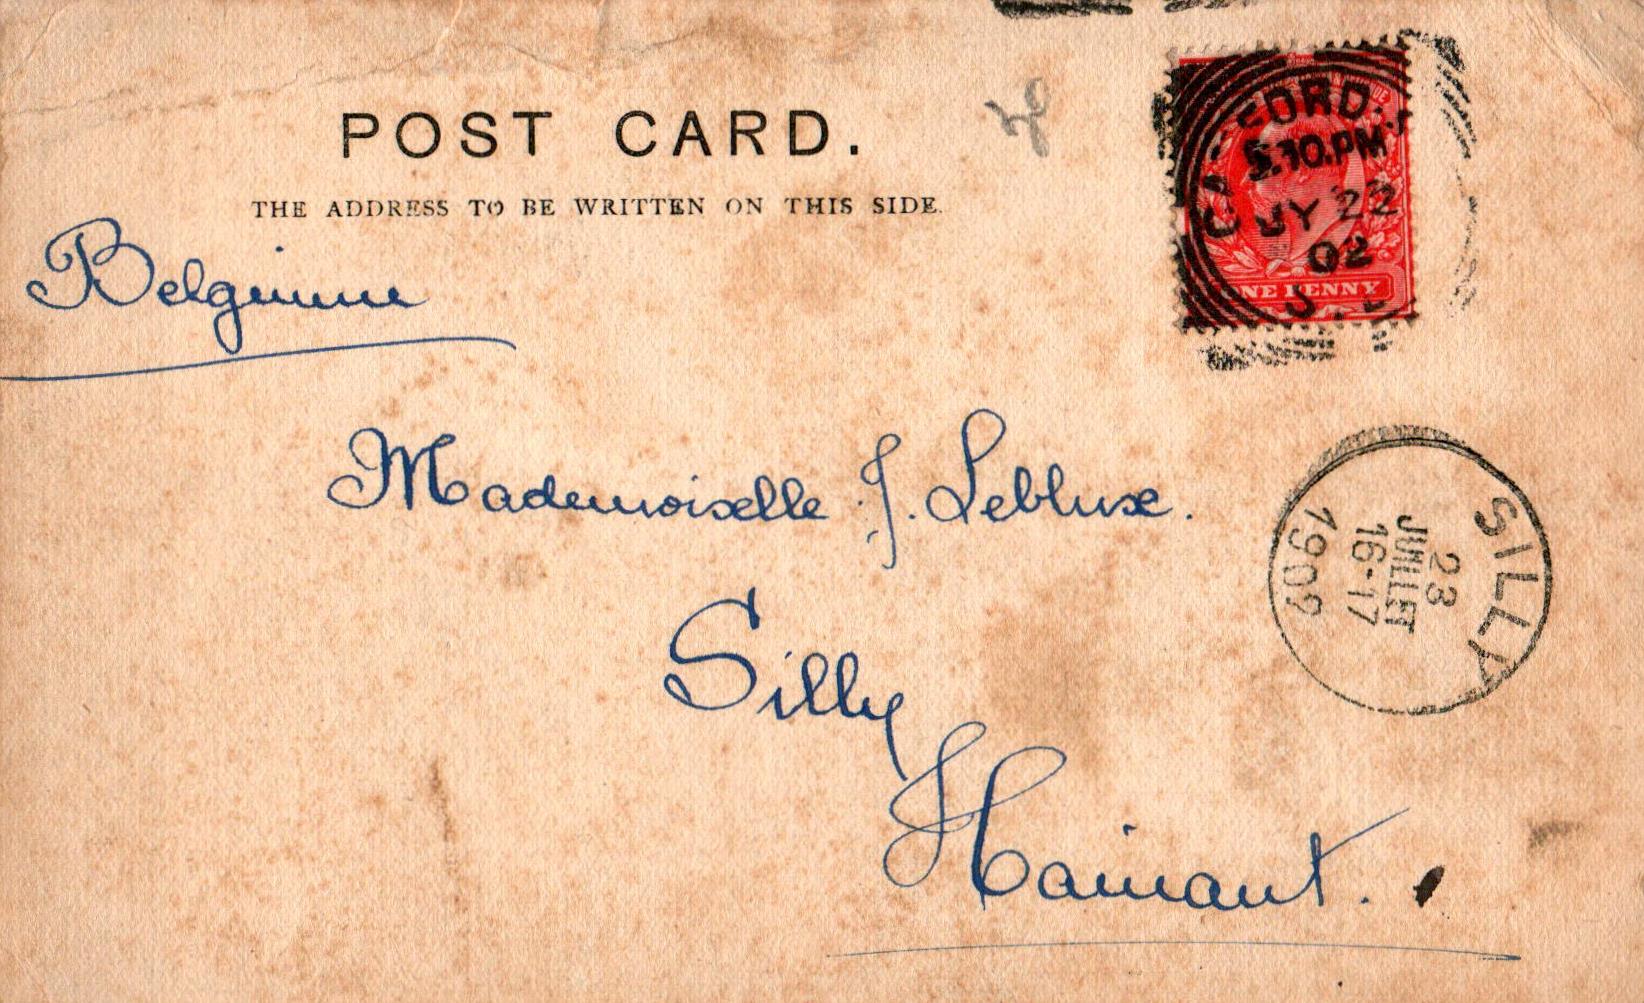 POST CARD.
THE ADDRESS TO BE WRITTEN ON THIS SIDE.
5.30.PM
JY 22
02
ONE PENNY
Belgium
Mademoiselle J. Lebluxe.
Silly
Hainaut.
SILLY
23
JUILLET
16-17
1902